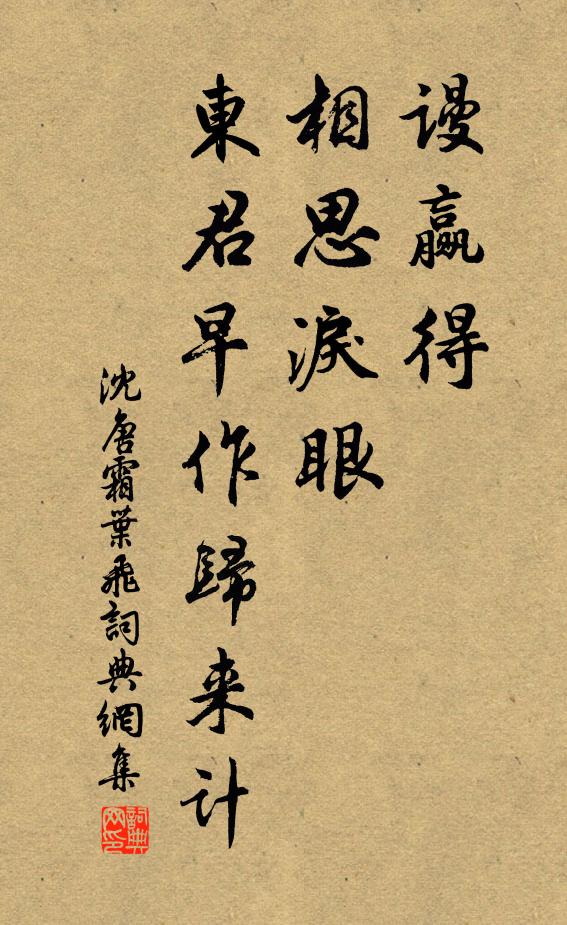 谩贏得
相思淚眼
東君早作歸来计
沈唐霜葉飛詞典網集
詞典网印